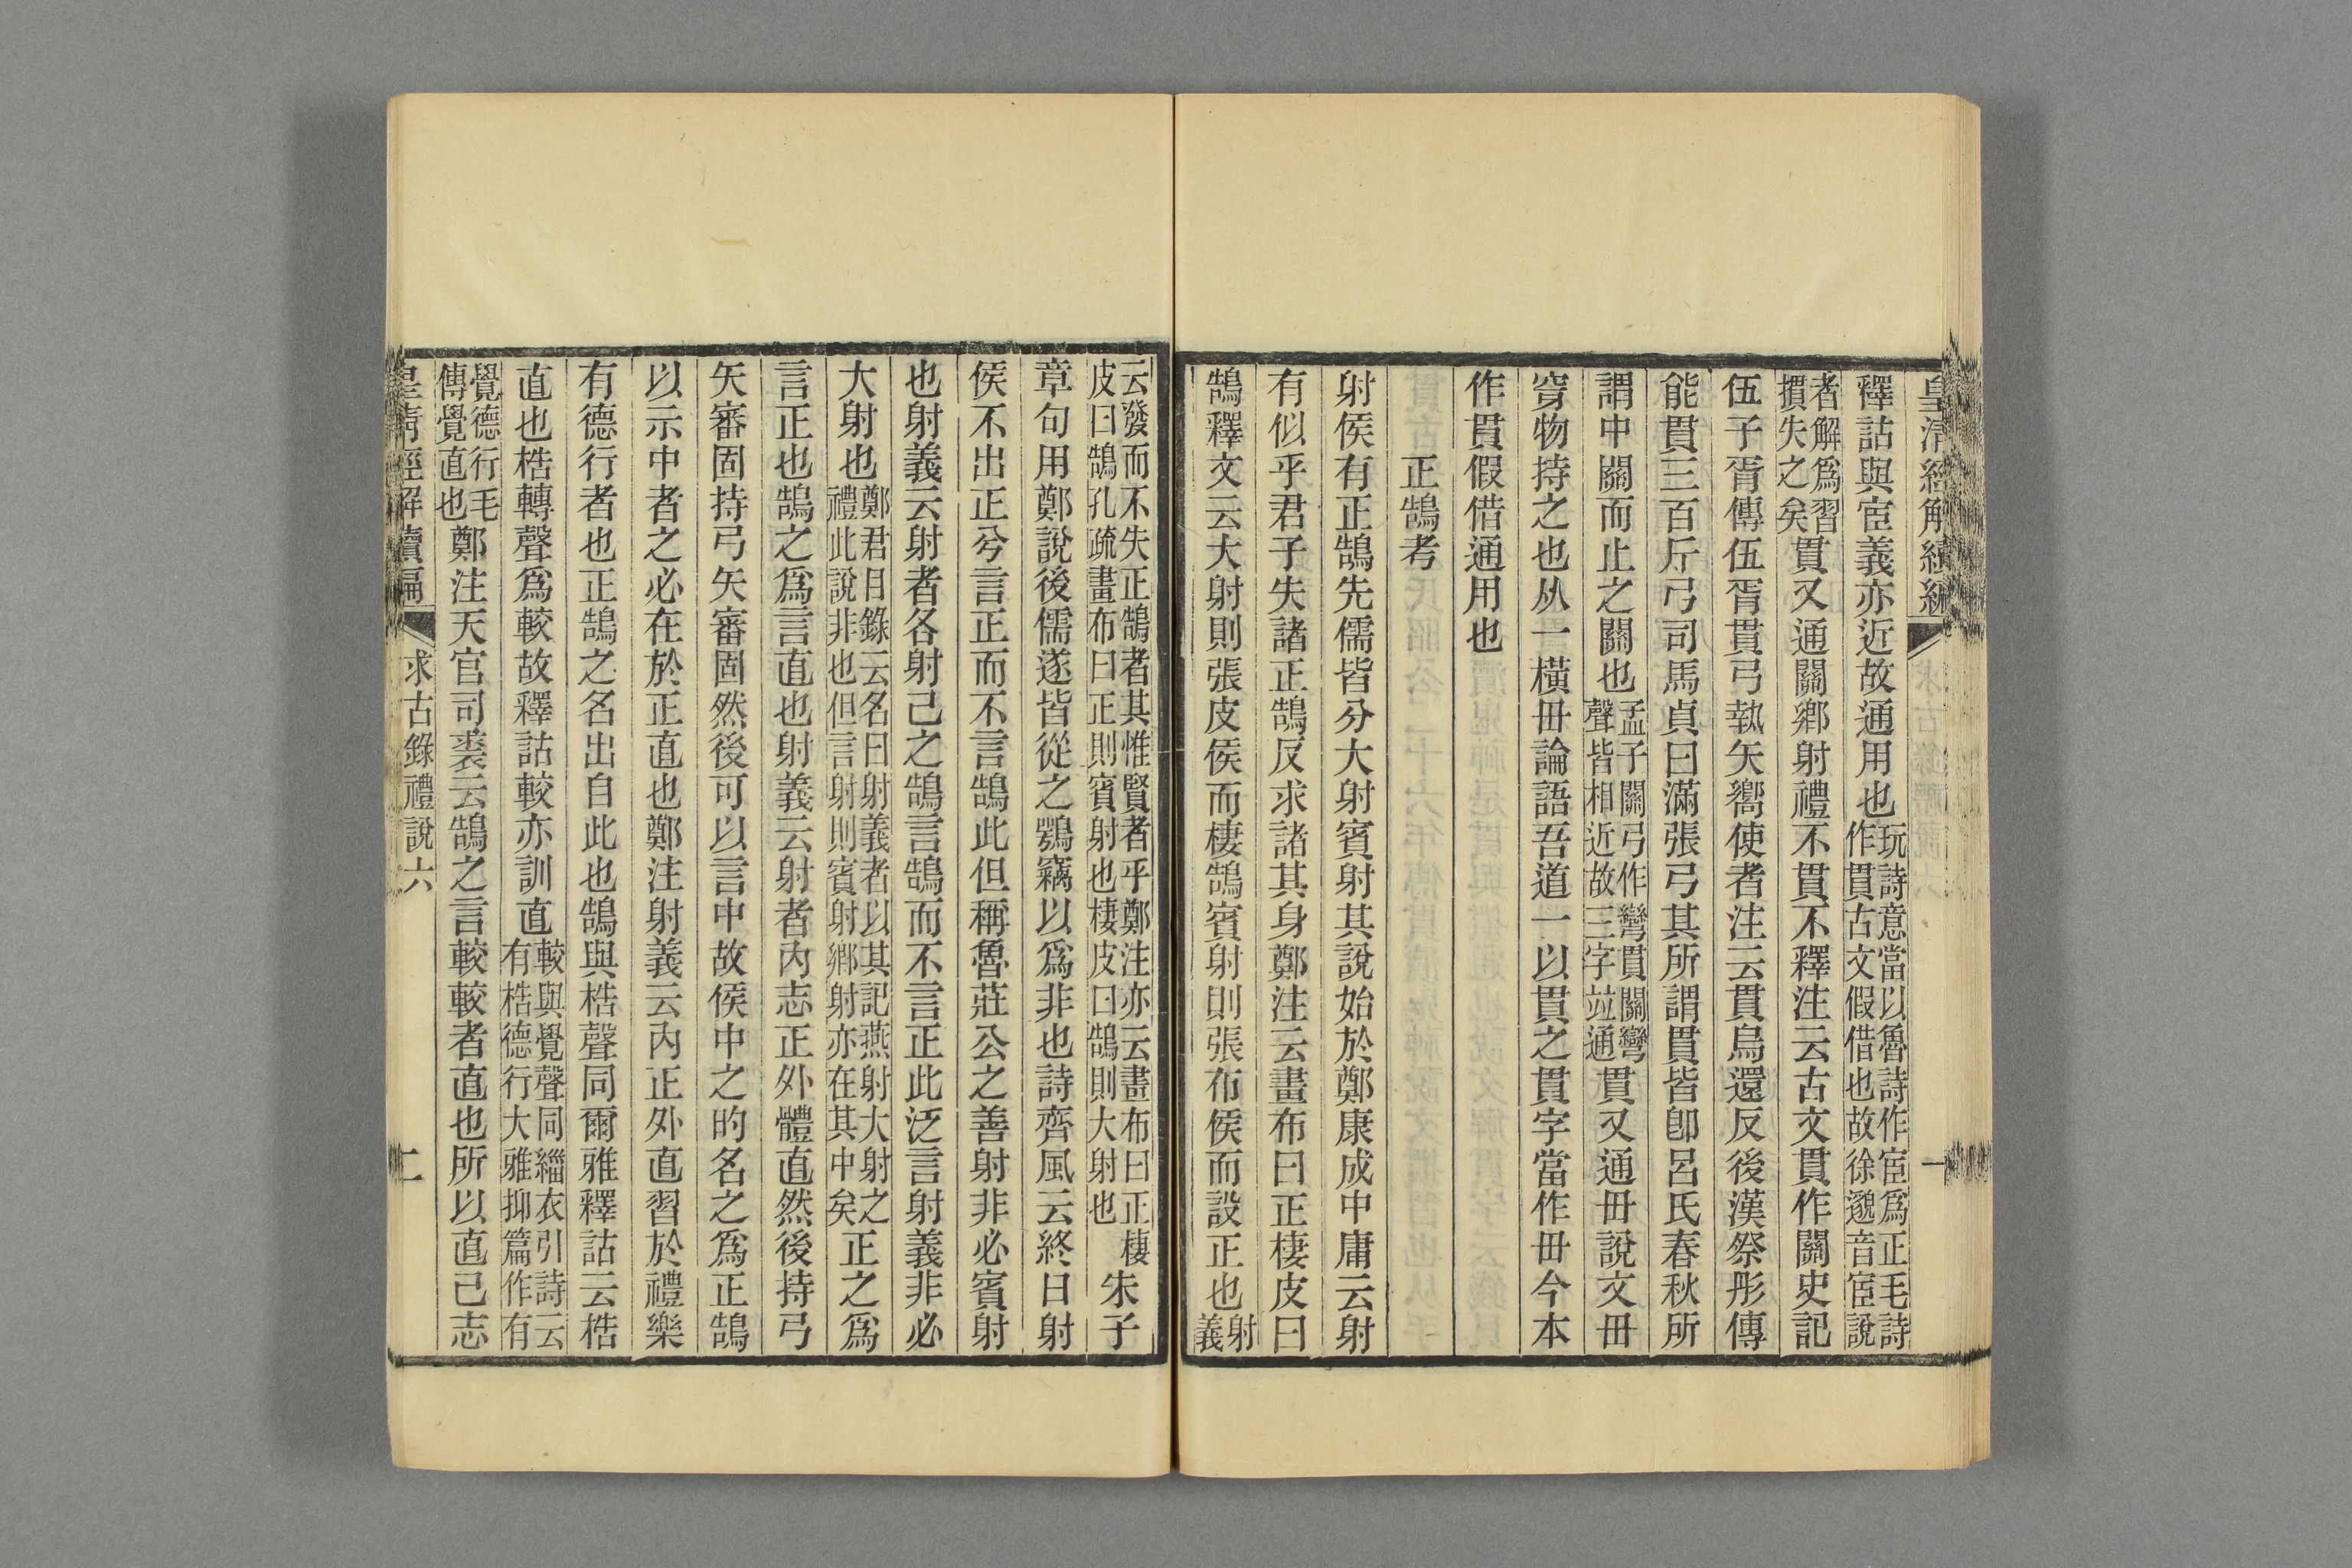 皇清經解續編
釋詁與宦義亦近故通用也玩詩意當以魯詩作宦爲正毛詩作貫古文假借也故徐邈音宦說
者解爲習摜失之矣貫又通關鄉射禮不貫不釋注云古文貫作關史記
伍子胥傳伍胥貫弓執矢嚮使者注云貫烏還反後漢祭肜傳
能貫三百斤弓司馬貞曰滿張弓其所謂貫皆卽呂氏春秋所
謂中關而止之關也孟子關弓作彎貫關彎聲皆相近故三字竝通貫又通毌說文毌
穿物持之也从一橫毌論語吾道一以貫之貫字當作毌今本
作貫假借通用也
正鵠考
射侯有正鵠先儒皆分大射賓射其說始於鄭康成中庸云射
有似乎君子失諸正鵠反求諸其身鄭注云畫布曰正棲皮曰
鵠釋文云大射則張皮侯而棲鵠賓射則張布侯而設正也射義
云發而不失正鵠者其惟賢者乎鄭注亦云畫布曰正棲皮曰鵠孔疏畫布曰正則賓射也棲皮曰鵠則大射也朱子
章句用鄭說後儒遂皆從之鶚竊以爲非也詩齊風云終日射
侯不出正兮言正而不言鵠此但稱魯莊公之善射非必賓射
也射義云射者各射己之鵠言鵠而不言正此泛言射義非必
大射也鄭君目錄云名曰射義者以其記燕射大射之禮此說非也但言射則賓射鄉射亦在其中矣正之爲
言正也鵠之爲言直也射義云射者內志正外體直然後持弓
矢審固持弓矢審固然後可以言中故侯中之的名之爲正鵠
以示中者之必在於正直也鄭注射義云內正外直習於禮樂
有德行者也正鵠之名出自此也鵠與梏聲同爾雅釋詁云梏
直也梏轉聲爲較故釋詁較亦訓直較與覺聲同緇衣引詩云有梏德行大雅抑篇作有
覺德行毛傳覺直也鄭注天官司裘云鵠之言較較者直也所以直己志
皇清經解續編
求古錄禮說六
二